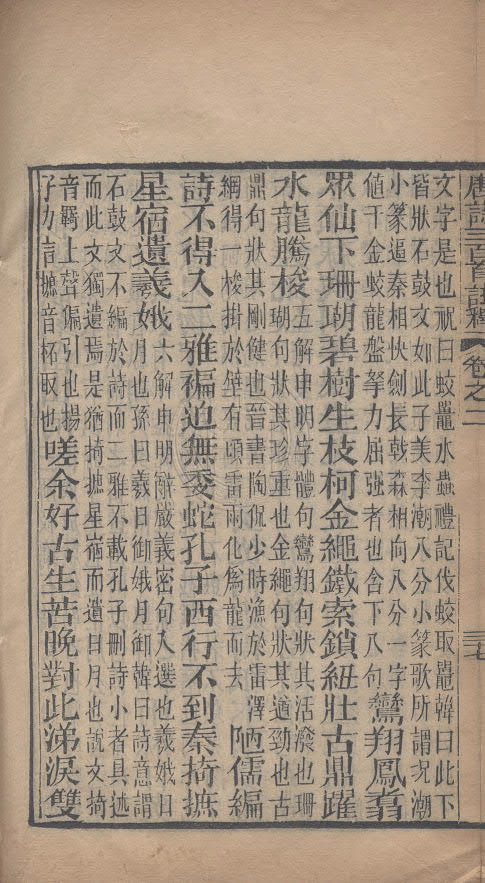 唐詩三百首註釋 卷之二 三七
文字是也祝曰蛟鼉水蟲禮記伐蛟取鼉韓曰此下
皆狀石鼓文如此子美李潮八分小篆歌所謂况潮
小篆逼秦相快劍長戟森相向八分一字
値千金蛟龍盤拏力屈強者也含下八句
鸞翔鳳翥
眾仙下珊瑚碧樹生枝柯金繩鐵索鎖紐壯古鼎躍
水龍騰梭
五解申明字體句鸞翔句狀其活潑也珊
瑚句狀其珍重也金繩句狀其遒勁也古
鼎句狀其剛健也晉書陶侃少時漁於雷澤
網得一梭掛於壁有頃雷雨化爲龍而去
陋儒編
詩不得入二雅褊迫無委蛇孔子西行不到秦掎摭
星宿遺羲娥
六解申明辭嚴義密句入選也羲娥日
月也孫曰羲日御娥月御韓曰詩意謂
石鼓文不編於詩而二雅不載孔子刪詩小者具述
而此文獨遺焉是猶掎摭星宿而遺日月也說文掎
音羈上聲偏引也揚
子力言摭音杯取也
嗟余好古生苦晚對此涕淚雙